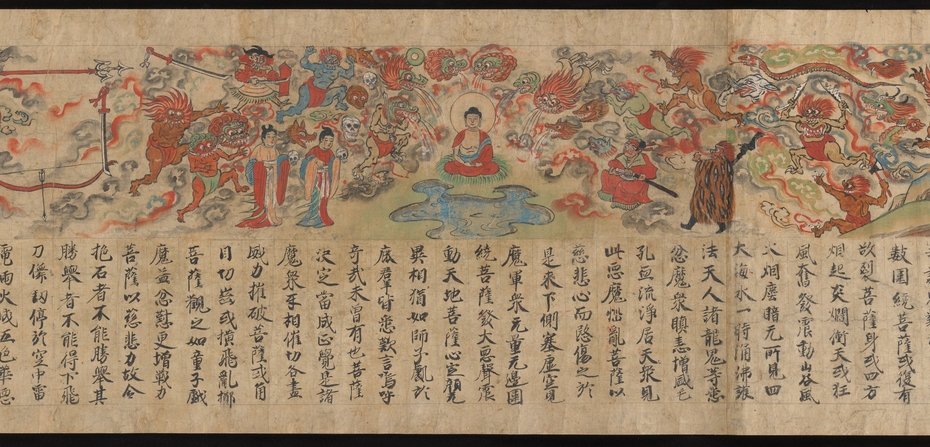 數圍繞菩薩或復有
欲裂菩薩身或四方
烟起炎爓衝天或狂
風奮發震動山谷風
火烟塵暗无所見四
大海水一時涌沸護
法天人諸龍鬼等悉
忿魔衆瞋恚增盛毛
孔血流淨居天衆見
此惡魔惱亂菩薩以
慈悲心而愍傷之於
是來下側塞虛空見
魔軍衆无量无邊圍
繞菩薩發大惡聲震
動天地菩薩心定顏无
異相猶如師子處於
鹿群皆悉歎言嗚呼
奇哉未曾有也菩薩
決定當成正覺是諸
魔衆互相催切各盡
威力摧破菩薩或角
目切齒或橫飛亂擲
菩薩觀之如童子戲
魔益忿懟更增戰力
菩薩以慈悲力故令
抱石者不能勝舉其
勝舉者不能得下飛
刀儛劒停於空中雷
電雨火成五色華惡